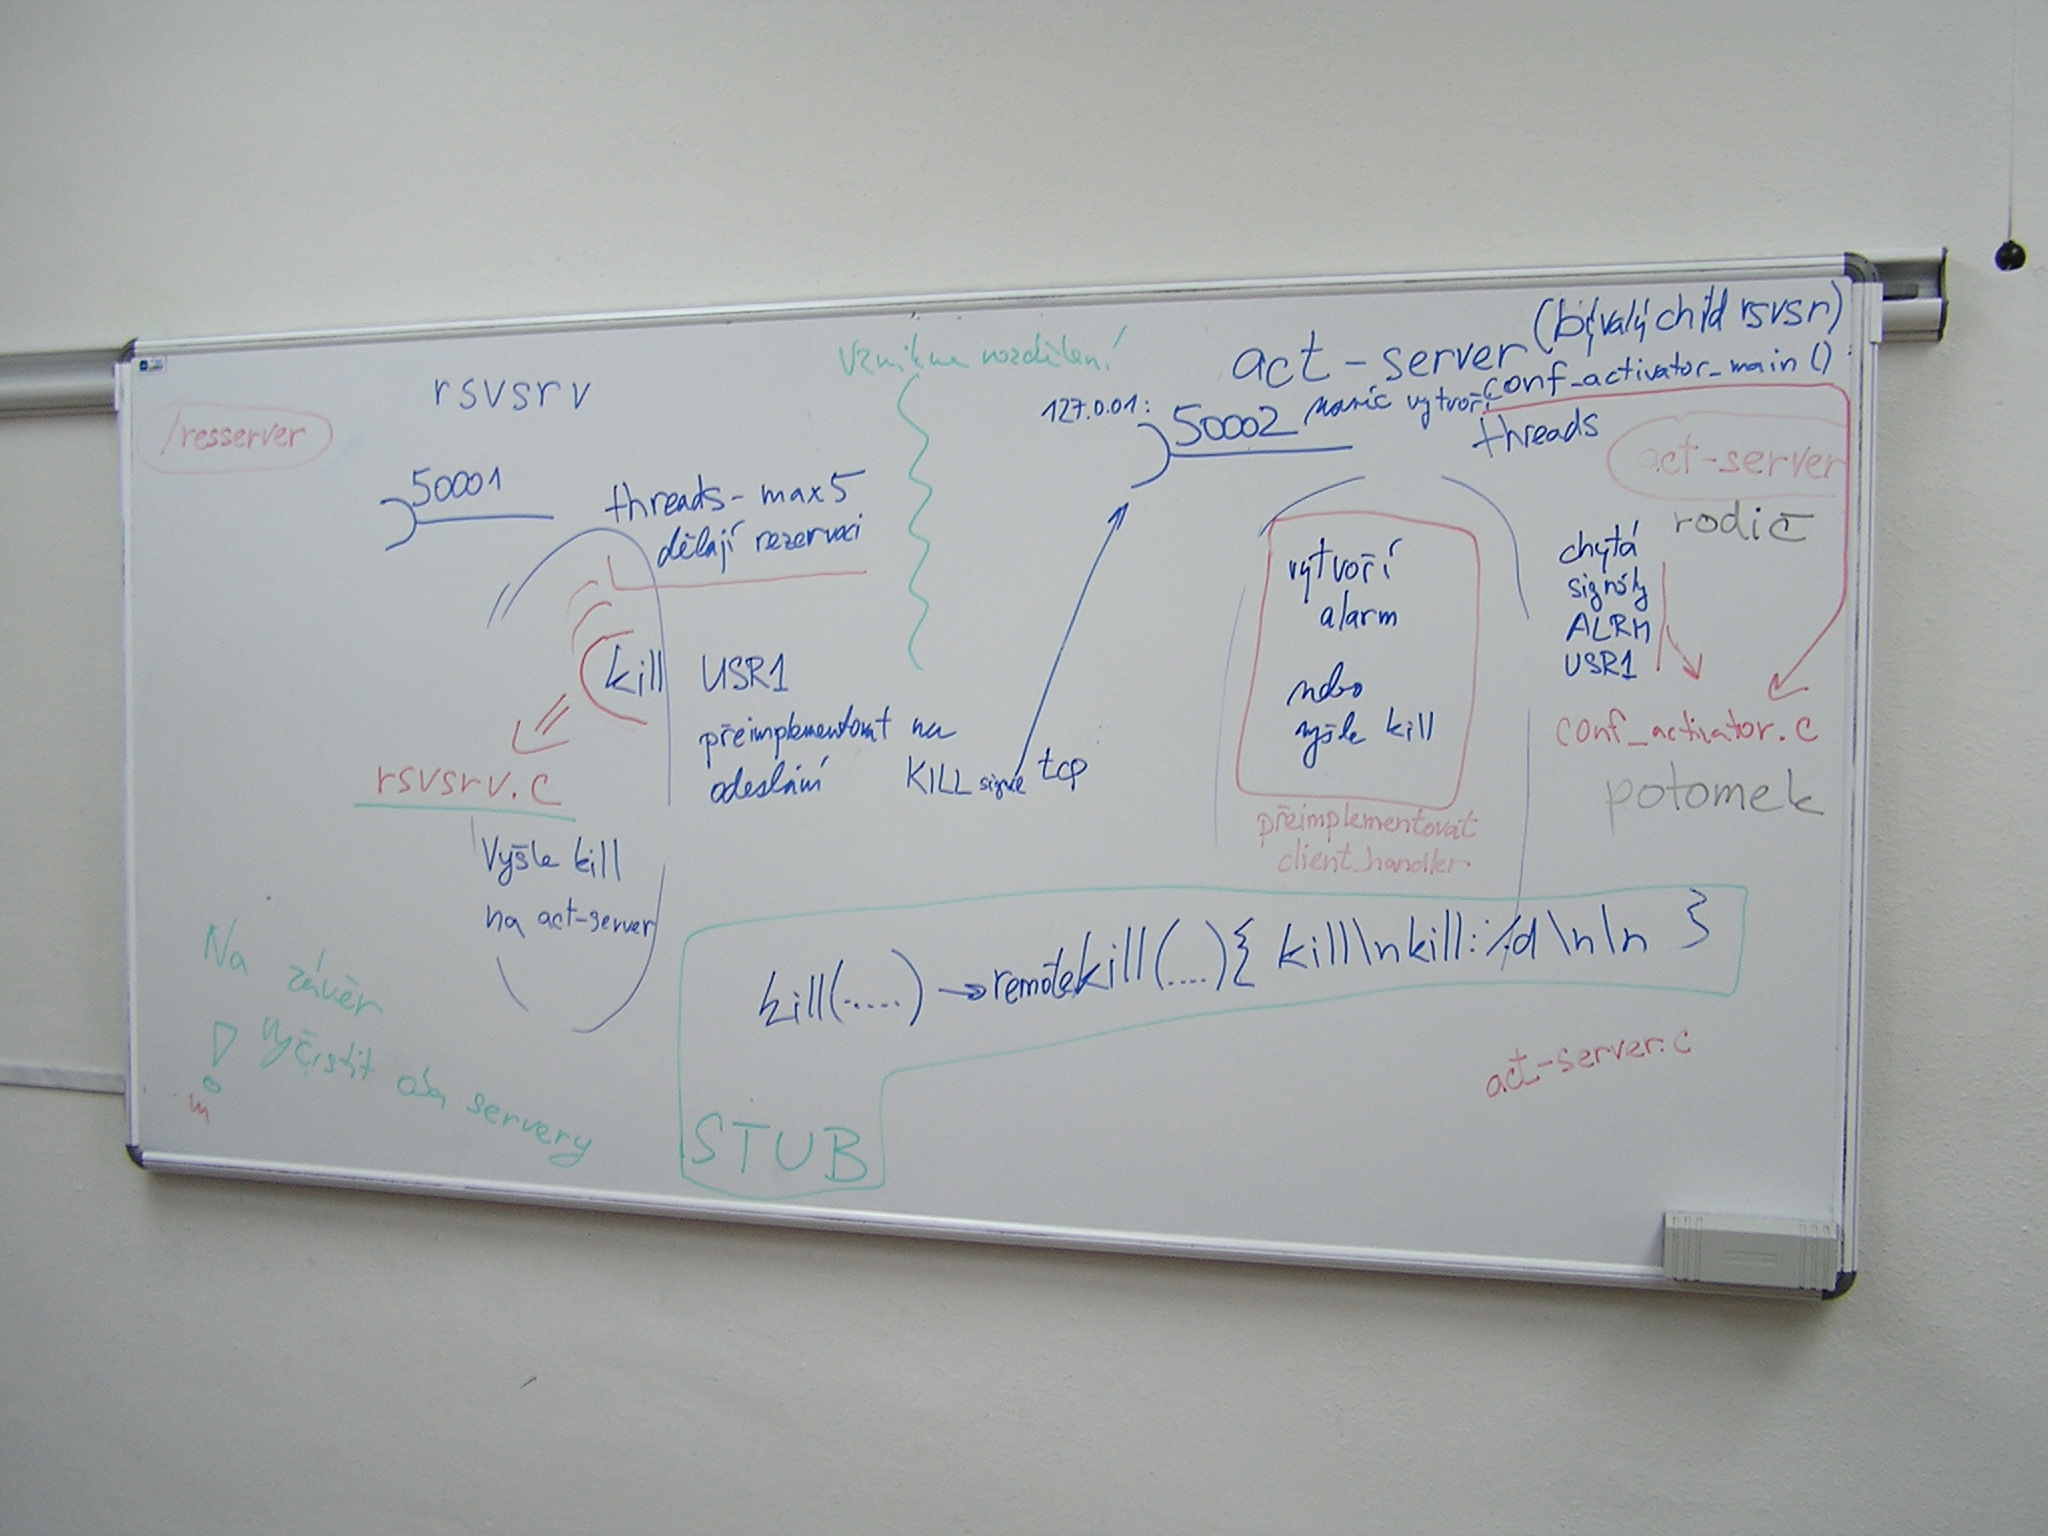 rsvsrv
/resserver
50001
threads - max 5
dělají rezervaci
kill USR1
přeimplementovat na
odeslání KILL signál tcp
rsvsrv.c
Vyšle kill
na act-server
Na závěr
vyčistit oba servery
Vznikne rozdělení
act-server (bývalý child rsvsr)
conf_activator_main()
127.0.01: 50002 navíc vytvoří
threads
act-server
rodič
vytvoří
alarm
nebo
vyšle kill
přeimplementovat
client_handler
chytá
signály
ALRM
USR1
conf_activator.c
potomek
kill(.....) → remotekill(....){ kill\nkill:%d\n\n }
STUB
act-server.c